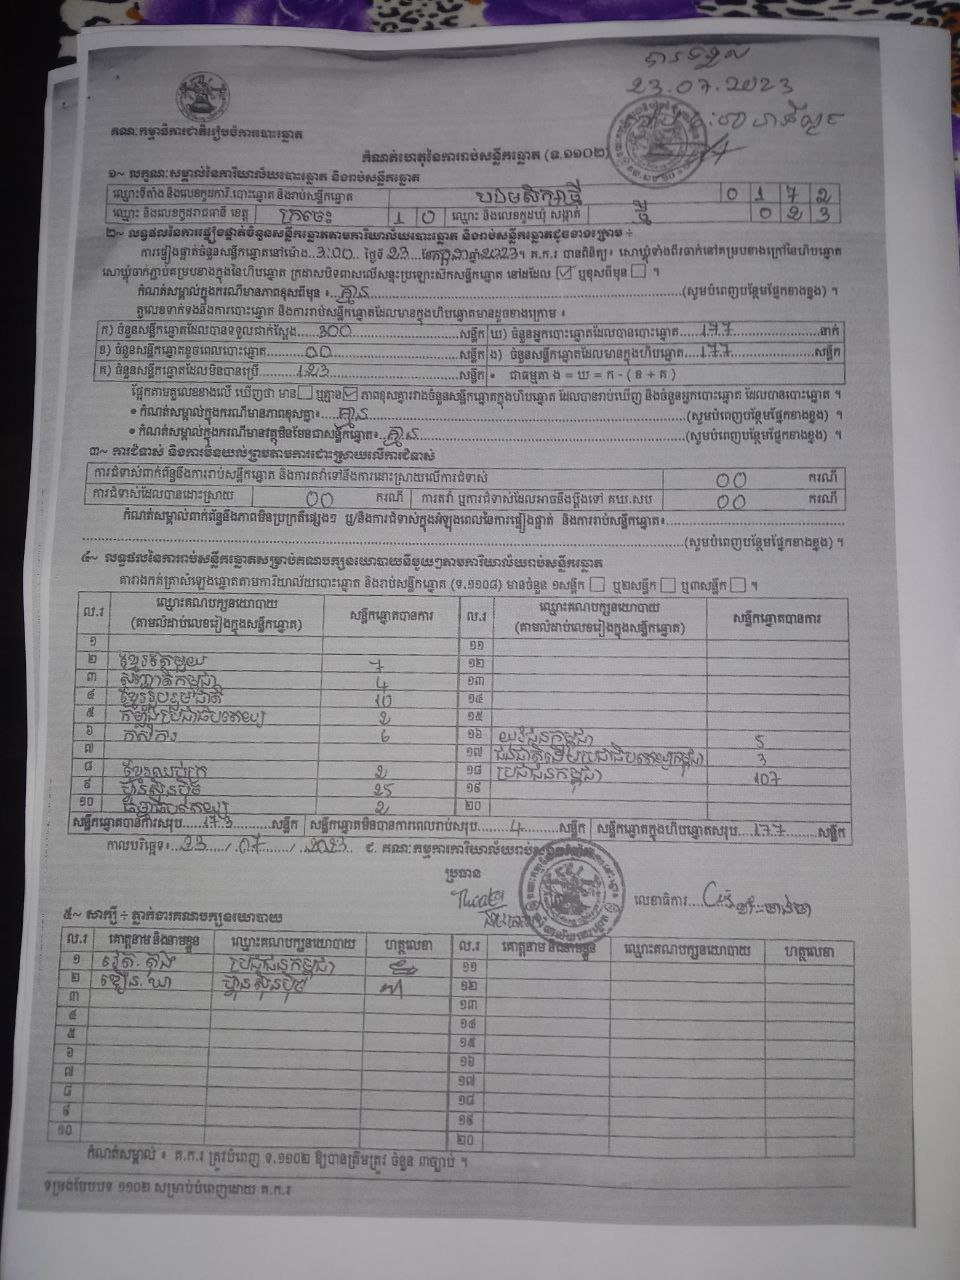 បានទទួល
23.07.2023
គណៈកម្មាធិការជាតិរៀបចំការបោះឆ្នោត
កំណត់ហេតុនៃការរាប់សន្លឹកឆ្នោត (ទ.១១០២)
១~ លក្ខណៈសម្គាល់នៃការិយាល័យបោះឆ្នោត និងរាប់សន្លឹកឆ្នោត
ឈ្មោះទីតាំង និងលេខកូដការិ.បោះឆ្នោត និងរាប់សន្លឹកឆ្នោត 0 1 7 2
ឈ្មោះ និងលេខកូដរាជធានី ខេត្ត ក្រចេះ 1 0 ឈ្មោះ និងលេខកូដឃុំ សង្កាត់ ធ្មី 0 2 3
២~ លទ្ធផលនៃការផ្ទៀងផ្ទាត់ចំនួនសន្លឹកឆ្នោតតាមការិយាល័យបោះឆ្នោត និងរាប់សន្លឹកឆ្នោតដូចខាងក្រោម ៖
ការផ្ទៀងផ្ទាត់ចំនួនសន្លឹកឆ្នោតនៅម៉ោង..3:00.. ថ្ងៃទី 23...ខែកក្កដាឆ្នាំ2023។ គ.ក.រ បានពិនិត្យ៖ សោឃ្លុំទាំងពីរចាក់នៅគម្របខាងក្រៅនៃហិបឆ្នោត
សោឃ្លុំចាក់ភ្ជាប់គម្របខាងក្នុងនៃហិបឆ្នោត ក្រដាសបិទពាសលើសន្ទះប្រឡោះសិកសន្លឹកឆ្នោត នៅដដែល ☑ ឬខុសពីមុន ☐ ។
កំណត់សម្គាល់ក្នុងករណីមានភាពខុសពីមុន ៖ គ្មាន (សូមបំពេញបន្ថែមផ្នែកខាងខ្នង) ។
តួលេខទាក់ទងនឹងការបោះឆ្នោត និងការរាប់សន្លឹកឆ្នោតដែលមានក្នុងហិបឆ្នោតមានដូចខាងក្រោម ៖
ក) ចំនួនសន្លឹកឆ្នោតដែលបានទទួលជាក់ស្តែង 300 សន្លឹក ឃ) ចំនួនអ្នកបោះឆ្នោតដែលបានបោះឆ្នោត 177 នាក់
ខ) ចំនួនសន្លឹកឆ្នោតខូចពេលបោះឆ្នោត 00 សន្លឹក ង) ចំនួនសន្លឹកឆ្នោតដែលមានក្នុងហិបឆ្នោត 177 សន្លឹក
គ) ចំនួនសន្លឹកឆ្នោតដែលមិនបានប្រើ 123 សន្លឹក • ជាធម្មតា ង = ឃ = ក - ( ខ + គ )
ផ្អែកតាមតួលេខខាងលើ ឃើញថា មាន☐ ឬគ្មាន☑ ភាពខុសគ្នារវាងចំនួនសន្លឹកឆ្នោតក្នុងហិបឆ្នោត ដែលបានរាប់ឃើញ និងចំនួនអ្នកបោះឆ្នោត ដែលបានបោះឆ្នោត ។
• កំណត់សម្គាល់ក្នុងករណីមានភាពខុសគ្នា៖ គ្មាន (សូមបំពេញបន្ថែមផ្នែកខាងខ្នង) ។
• កំណត់សម្គាល់ក្នុងករណីមានវត្ថុមិនមែនជាសន្លឹកឆ្នោត៖ គ្មាន (សូមបំពេញបន្ថែមផ្នែកខាងខ្នង) ។
៣~ ការជំទាស់ និងការមិនយល់ព្រមតាមការដោះស្រាយលើការជំទាស់
ការជំទាស់ពាក់ព័ន្ធនឹងការរាប់សន្លឹកឆ្នោត និងការតវ៉ាទៅនឹងការដោះស្រាយលើការជំទាស់ 00 ករណី
ការជំទាស់ដែលបានដោះស្រាយ 00 ករណី ការតវ៉ា ឬការជំទាស់ដែលអាចនឹងប្តឹងទៅ គឃ.សប 00 ករណី
កំណត់សម្គាល់ពាក់ព័ន្ធនឹងភាពមិនប្រក្រតីផ្សេងៗ ឬ/និងការជំទាស់ក្នុងអំឡុងពេលនៃការផ្ទៀងផ្ទាត់ និងការរាប់សន្លឹកឆ្នោត៖
(សូមបំពេញបន្ថែមផ្នែកខាងខ្នង) ។
៤~ លទ្ធផលនៃការរាប់សន្លឹកឆ្នោតសម្រាប់គណបក្សនយោបាយនីមួយៗតាមការិយាល័យរាប់សន្លឹកឆ្នោត
តារាងកត់ត្រាសំឡេងឆ្នោតតាមការិយាល័យបោះឆ្នោត និងរាប់សន្លឹកឆ្នោត (ទ.១១០៨) មានចំនួន ១សន្លឹក ☐ ឬ២សន្លឹក ☐ ឬ៣សន្លឹក ☐ ។
ល.រ ឈ្មោះគណបក្សនយោបាយ (តាមលំដាប់លេខរៀងក្នុងសន្លឹកឆ្នោត) សន្លឹកឆ្នោតបានការ ល.រ ឈ្មោះគណបក្សនយោបាយ (តាមលំដាប់លេខរៀងក្នុងសន្លឹកឆ្នោត) សន្លឹកឆ្នោតបានការ
១ ១១
២ ខ្មែរតែមួយ 7 ១២
៣ សញ្ជាតិកម្ពុជា 4 ១៣
៤ ខ្មែររួបរួមជាតិ 10 ១៤
៥ កម្លាំងប្រជាធិបតេយ្យ 2 ១៥
៦ កសិករ 6 ១៦ យុវជនកម្ពុជា 5
៧ ១៧ ជនជាតិដើមប្រជាធិបតេយ្យកម្ពុជា 3
៨ ខ្មែរឈប់ក្រ 2 ១៨ ប្រជាជនកម្ពុជា 107
៩ ហ៊្វុនស៊ិនប៉ិច 25 ១៩
១០ ធម្មាធិបតេយ្យ 2 ២០
សន្លឹកឆ្នោតបានការសរុប 173 សន្លឹក សន្លឹកឆ្នោតមិនបានការពេលរាប់សរុប 4 សន្លឹក សន្លឹកឆ្នោតក្នុងហិបឆ្នោតសរុប 177 សន្លឹក
កាលបរិច្ឆេទ៖ 23 / 07 / 2023 ៩. គណៈកម្មការការិយាល័យរាប់សន្លឹកឆ្នោត
ប្រធាន
លេខាធិការ
៥~ សាក្សី ÷ ភ្នាក់ងារគណបក្សនយោបាយ
ល.រ គោត្តនាម និងនាមខ្លួន ឈ្មោះគណបក្សនយោបាយ ហត្ថលេខា ល.រ គោត្តនាម និងនាមខ្លួន ឈ្មោះគណបក្សនយោបាយ ហត្ថលេខា
១ ប្រជាជនកម្ពុជា ១១
២ ហ៊្វុនស៊ិនប៉ិច ១២
៣ ១៣
៤ ១៤
៥ ១៥
៦ ១៦
៧ ១៧
៨ ១៨
៩ ១៩
១០ ២០
កំណត់សម្គាល់ ៖ គ.ក.រ ត្រូវបំពេញ ទ.១១០២ ឱ្យបានត្រឹមត្រូវ ចំនួន ៣ច្បាប់ ។
ទម្រង់បែបបទ ១១០២ សម្រាប់បំពេញដោយ គ.ក.រ